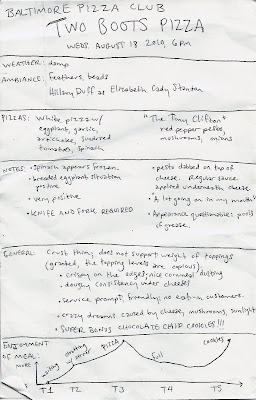 BALTIMORE PIZZA CLUB
TWO BOOTS PIZZA
WEDS. AUGUST 18 2010, 6PM
WEATHER: damp
AMBIANCE: Feathers, beads
Hillary Duff as Elizabeth Cady Stanton
PIZZAS: White pizza w/
eggplant, garlic,
artichoke, sundried
tomatoes, spinach
"The Tony Clifton"
red pepper pesto,
mushrooms, onions
NOTES: • Spinach appears frozen.
• breaded eggplant situation
positive
• very positive
• KNIFE AND FORK REQUIRED
• pesto dabbed on top of
cheese. Regular sauce
applied underneath cheese
• A lot going on in my mouth"
• Appearance questionable: pools
of grease.
GENERAL: Crust thin; does not support weight of toppings
(granted, the topping levels are copious).
• crispy on the edges; nice cornmeal dusting
doughy consistency under cheeses
• service prompt, friendly; no eat-in customers.
• crazy dreams caused by cheese, mushrooms, sunlight
• SUPER BONUS CHOCOLATE CHIP COOKIES!!!
ENJOYMENT
OF MEAL:
MORE
waiting
chatting
w/ server
PIZZA
full
cookies
T1 T2 T3 T4 T5